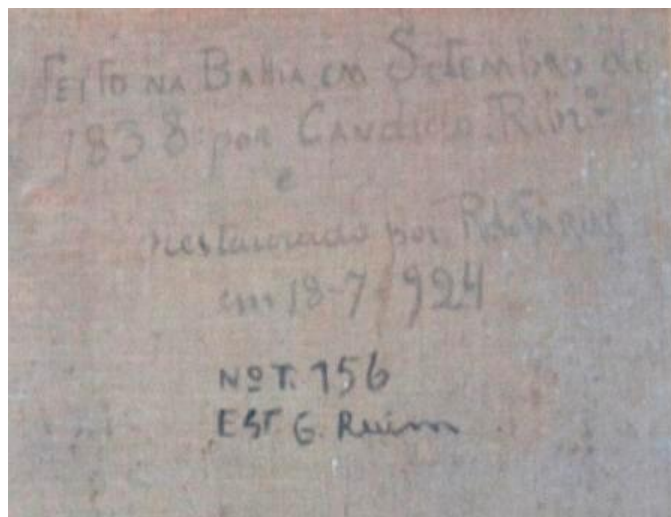 FEITO NA BAHIA EM SETEMBRO de
1838 por CANDIDO. Ribr.º
e
restaurado por
em 18-7-924
Nº T. 156
EST G. Ruim